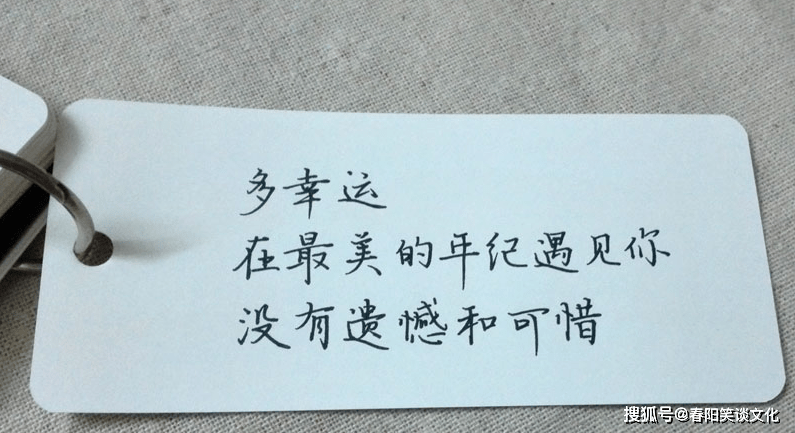 多幸运
在最美的年纪遇见你
没有遗憾和可惜
搜狐号@春阳笑谈文化